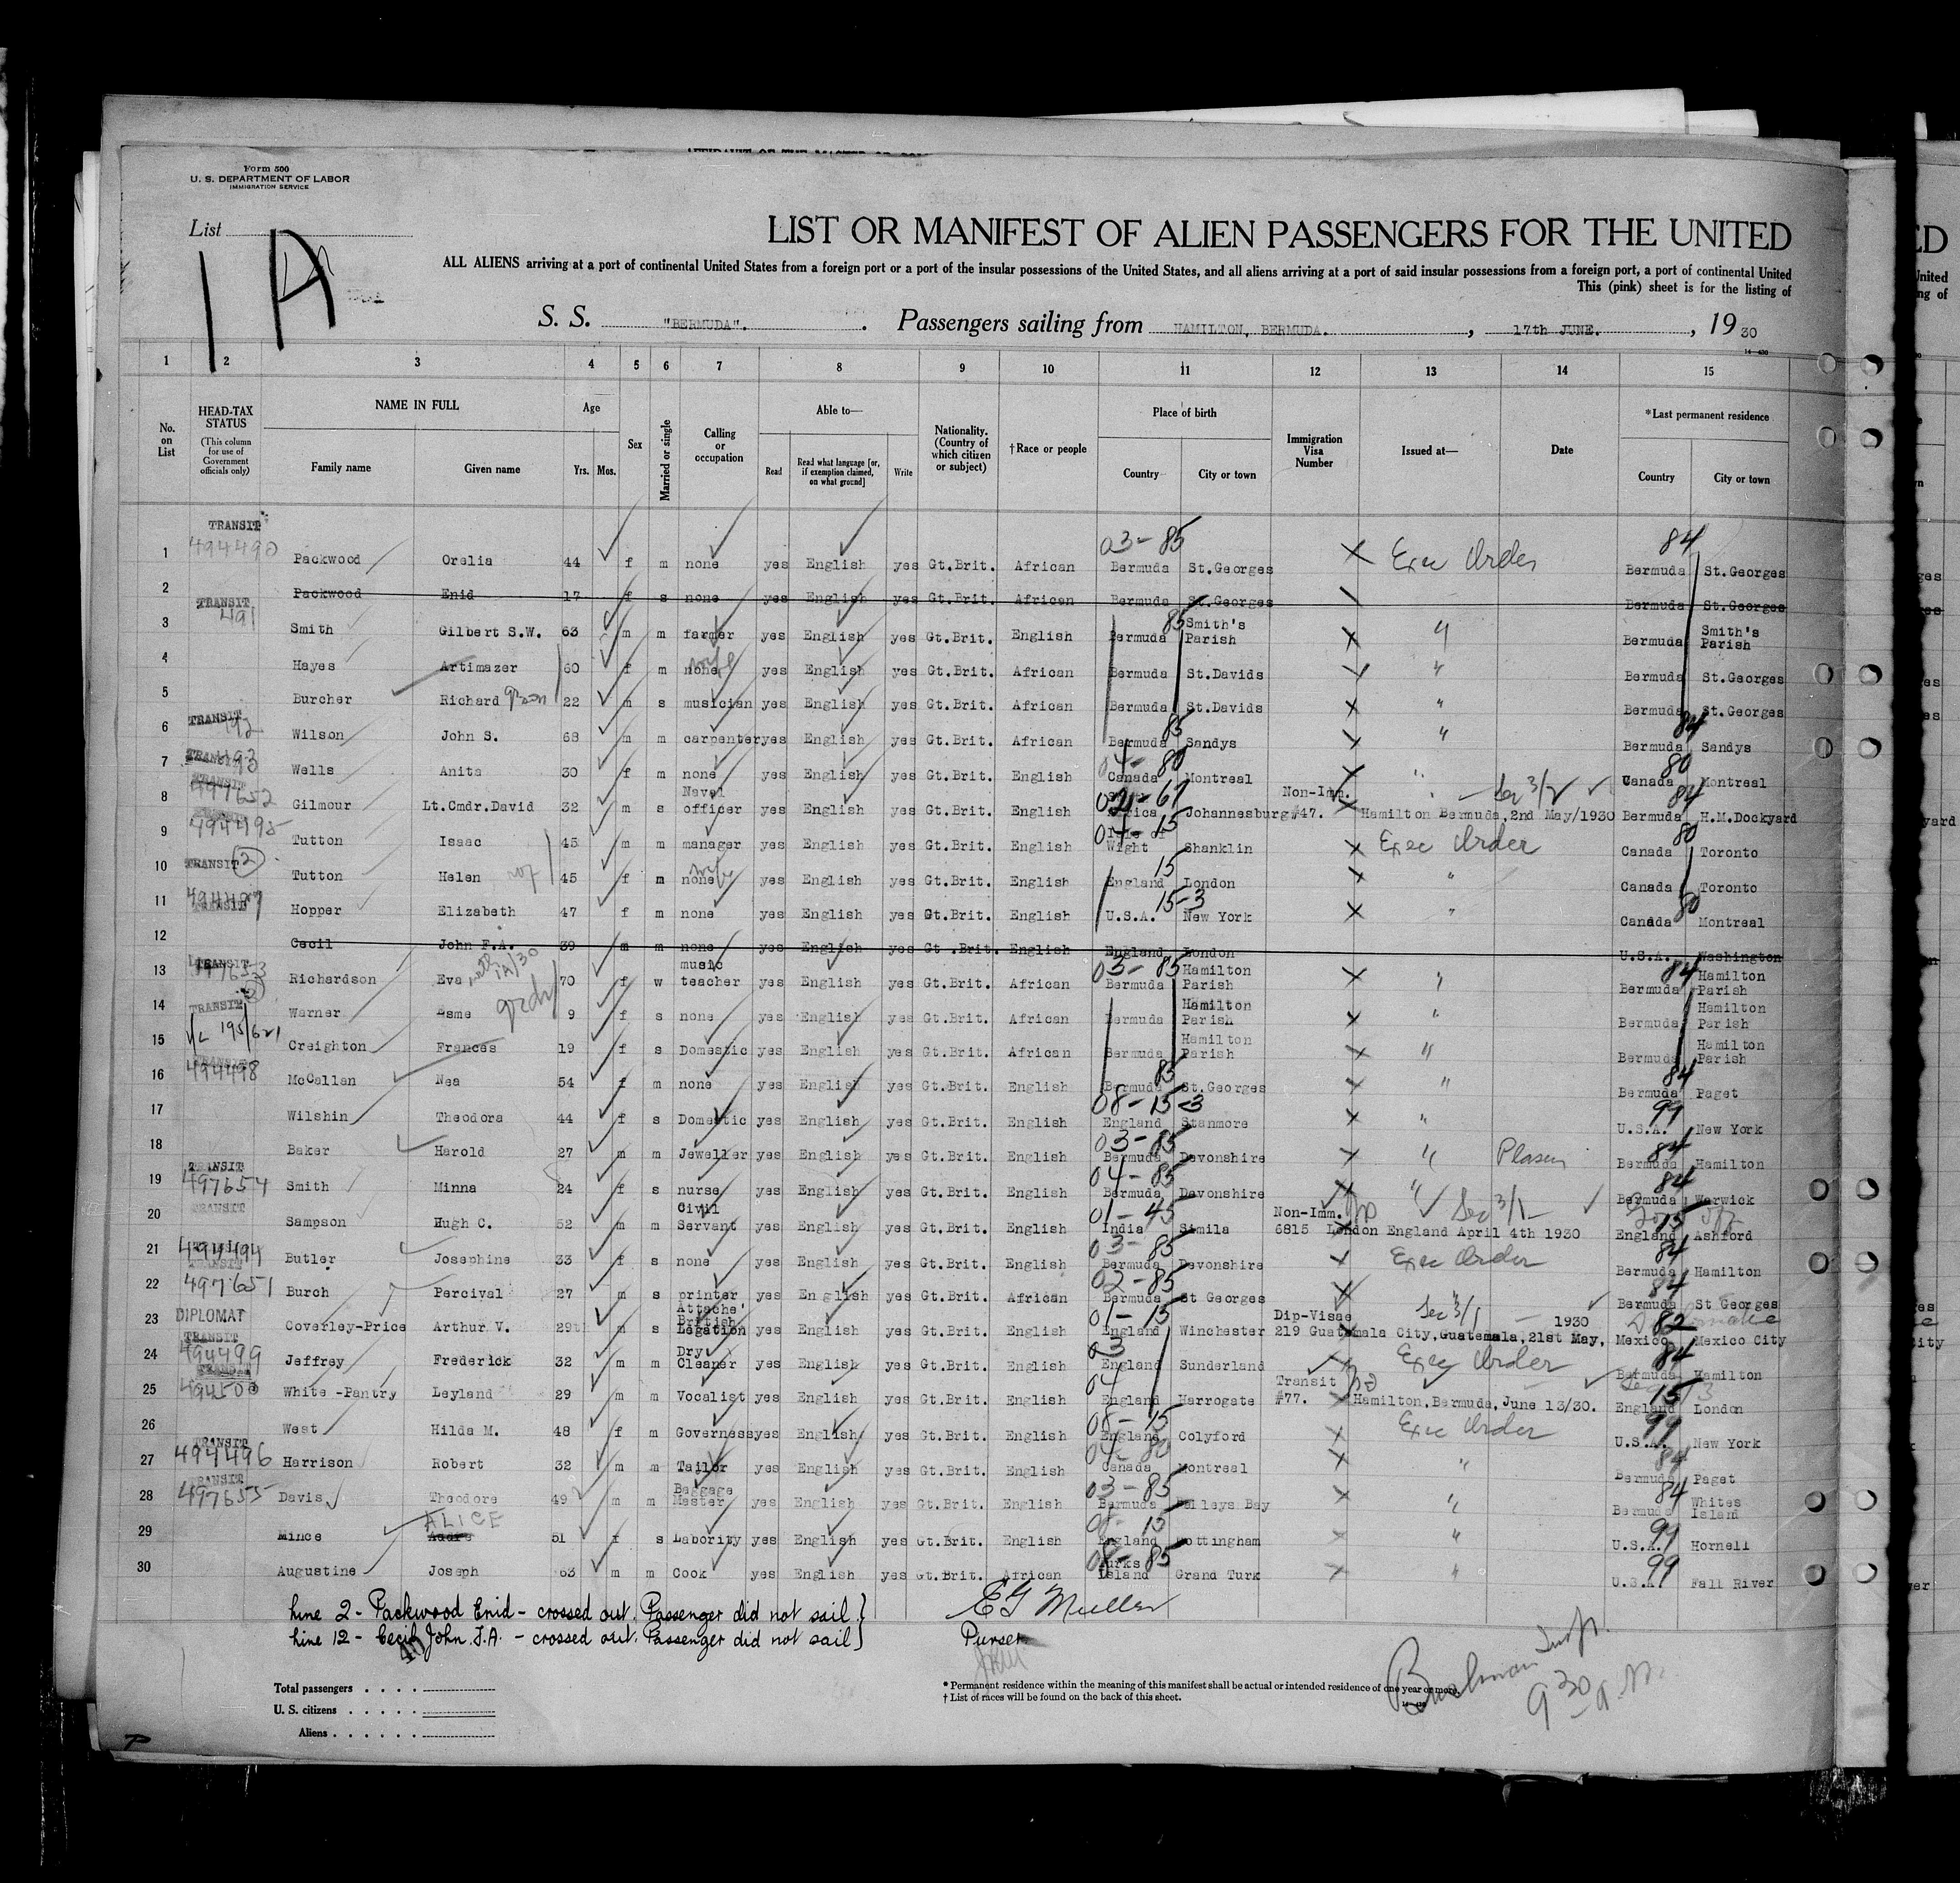 Form 500
U. S. DEPARTMENT OF LABOR
IMMIGRATION SERVICE
List
1 A
LIST OR MANIFEST OF ALIEN PASSENGERS FOR THE UNITED
ALL ALIENS arriving at a port of continental United States from a foreign port or a port of the insular possessions of the United States, and all aliens arriving at a port of said insular possessions from a foreign port, a port of continental United
This (pink) sheet is for the listing of
S. S. "BERMUDA". Passengers sailing from HAMILTON, BERMUDA. , 17th JUNE. , 1930
1 2 3 4 5 6 7 8 9 10 11 12 13 14 15
No. on List
HEAD-TAX STATUS (This column for use of Government officials only)
NAME IN FULL
Family name Given name
Age Yrs. Mos.
Sex
Married or single
Calling or occupation
Able to— Read Read what language [or, if exemption claimed, on what ground] Write
Nationality. (Country of which citizen or subject)
†Race or people
Place of birth Country City or town
Immigration Visa Number
Issued at—
Date
*Last permanent residence Country City or town
TRANSIT 03-85 84
1 494490 Packwood Orelia 44 f m none yes English yes Gt.Brit. African Bermuda St.Georges Exec Order Bermuda St.Georges
2 Packwood Enid 17 f s none yes English yes Gt.Brit. African Bermuda St.Georges Bermuda St.Georges
3 TRANSIT 491 Smith Gilbert S.W. 63 m m farmer yes English yes Gt.Brit. English Bermuda 85 Smith's Parish " Bermuda Smith's Parish
4 Hayes Artimazer 60 f m none wife yes English yes Gt.Brit. African Bermuda St.Davids " Bermuda St.Georges
5 Burcher Richard 22 m s musician yes English yes Gt.Brit. African Bermuda St.Davids " Bermuda St.Georges
6 TRANSIT 492 Wilson John S. 68 m m carpenter yes English yes Gt.Brit. African 85 Bermuda Sandys " 84 Bermuda Sandys
7 TRANSIT 493 Wells Anita 30 f m none yes English yes Gt.Brit. English 04-80 Canada Montreal " 80 Canada Montreal
8 TRANSIT 497652 Gilmour Lt.Cmdr.David 32 m s Naval officer yes English yes Gt.Brit. English Africa Johannesburg Non-Imm. #47. Hamilton Bermuda, 2nd May/1930 Sec 3/2 84 Bermuda H.M.Dockyard
9 494495 Tutton Isaac 45 m m manager yes English yes Gt.Brit. English 04-15 Isle of Wight Shanklin Exec Order 80 Canada Toronto
10 TRANSIT (2) Tutton Helen 45 f m none wife yes English yes Gt.Brit. English 15 England London " Canada Toronto
11 494497 TRANSIT Hopper Elizabeth 47 f m none yes English yes Gt.Brit. English 15-3 U.S.A. New York " 80 Canada Montreal
12 Cecil John F.A. 39 m m none yes English yes Gt.Brit. English England London U.S.A. Washington
13 TRANSIT 497653 Richardson Eva 70 f w music teacher yes English yes Gt.Brit. African 03-85 Bermuda Hamilton Parish " 84 Bermuda Hamilton Parish
14 TRANSIT Warner Esme 9 f s none yes English yes Gt.Brit. African Bermuda Hamilton Parish " Bermuda Hamilton Parish
15 195/621 Creighton Frances 19 f s Domestic yes English yes Gt.Brit. African Bermuda Hamilton Parish " Bermuda Hamilton Parish
16 TRANSIT 494498 McCallan Nea 54 f m none yes English yes Gt.Brit. English 85 Bermuda St.Georges " 84 Bermuda Paget
17 Wilshin Theodora 44 f s Domestic yes English yes Gt.Brit. English 08-15-3 England Stanmore " 99 U.S.A. New York
18 Baker Harold 27 m m Jeweller yes English yes Gt.Brit. English 03-85 Bermuda Devonshire " 84 Bermuda Hamilton
19 TRANSIT 497654 Smith Minna 24 f s nurse yes English yes Gt.Brit. English 04-85 Bermuda Devonshire " 84 Bermuda Warwick
20 TRANSIT Sampson Hugh C. 52 m m Civil Servant yes English yes Gt.Brit. English 01-45 India Simila Non-Imm. 6815 London England April 4th 1930 Sec 3/1 15 England Ashford
21 494494 TRANSIT Butler Josephine 33 f s none yes English yes Gt.Brit. English 03-85 Bermuda Devonshire Exec Order 84 Bermuda Hamilton
22 497651 Burch Percival 27 m s printer yes English yes Gt.Brit. African 02-85 Bermuda St Georges " 84 Bermuda St Georges
23 DIPLOMAT Coverley-Price Arthur V. 29 m s Attache' British Legation yes English yes Gt.Brit. English 01-15 England Winchester Dip-Visae 219 Guatemala City, Guatemala, 21st May, 1930 Sec 3/1 82 Mexico Mexico City
24 TRANSIT 494499 Jeffrey Frederick 32 m m Dry Cleaner yes English yes Gt.Brit. English 03 England Sunderland Exec Order 84 Bermuda Hamilton
25 TRANSIT 494500 White -Pantry Leyland 29 m m Vocalist yes English yes Gt.Brit. English 04 England Harrogate Transit #77. Hamilton, Bermuda, June 13/30. 15 England London
26 West Hilda M. 48 f m Governess yes English yes Gt.Brit. English 08-15 England Colyford Exec Order 99 U.S.A. New York
27 TRANSIT 494496 Harrison Robert 32 m m Tailor yes English yes Gt.Brit. English 04-80 Canada Montreal " 84 Bermuda Paget
28 TRANSIT 497655 Davis Theodore 49 m m Baggage Master yes English yes Gt.Brit. English 03-85 Bermuda Baileys Bay " 84 Bermuda Whites Island
29 Mince ALICE 51 f s Labority yes English yes Gt.Brit. English 08-15 England Nottingham " 99 U.S.A. Hornell
30 Augustine Joseph 63 m m Cook yes English yes Gt.Brit. African 08-85 Turks Island Grand Turk " 99 U.S.A. Fall River
Line 2 - Packwood Enid - crossed out. Passenger did not sail }
Line 12 - Cecil John F.A. - crossed out. Passenger did not sail }
E G Mueller
Purser
Total passengers
U. S. citizens
Aliens
* Permanent residence within the meaning of this manifest shall be actual or intended residence of one year or more.
† List of races will be found on the back of this sheet.
9 30 a.m.